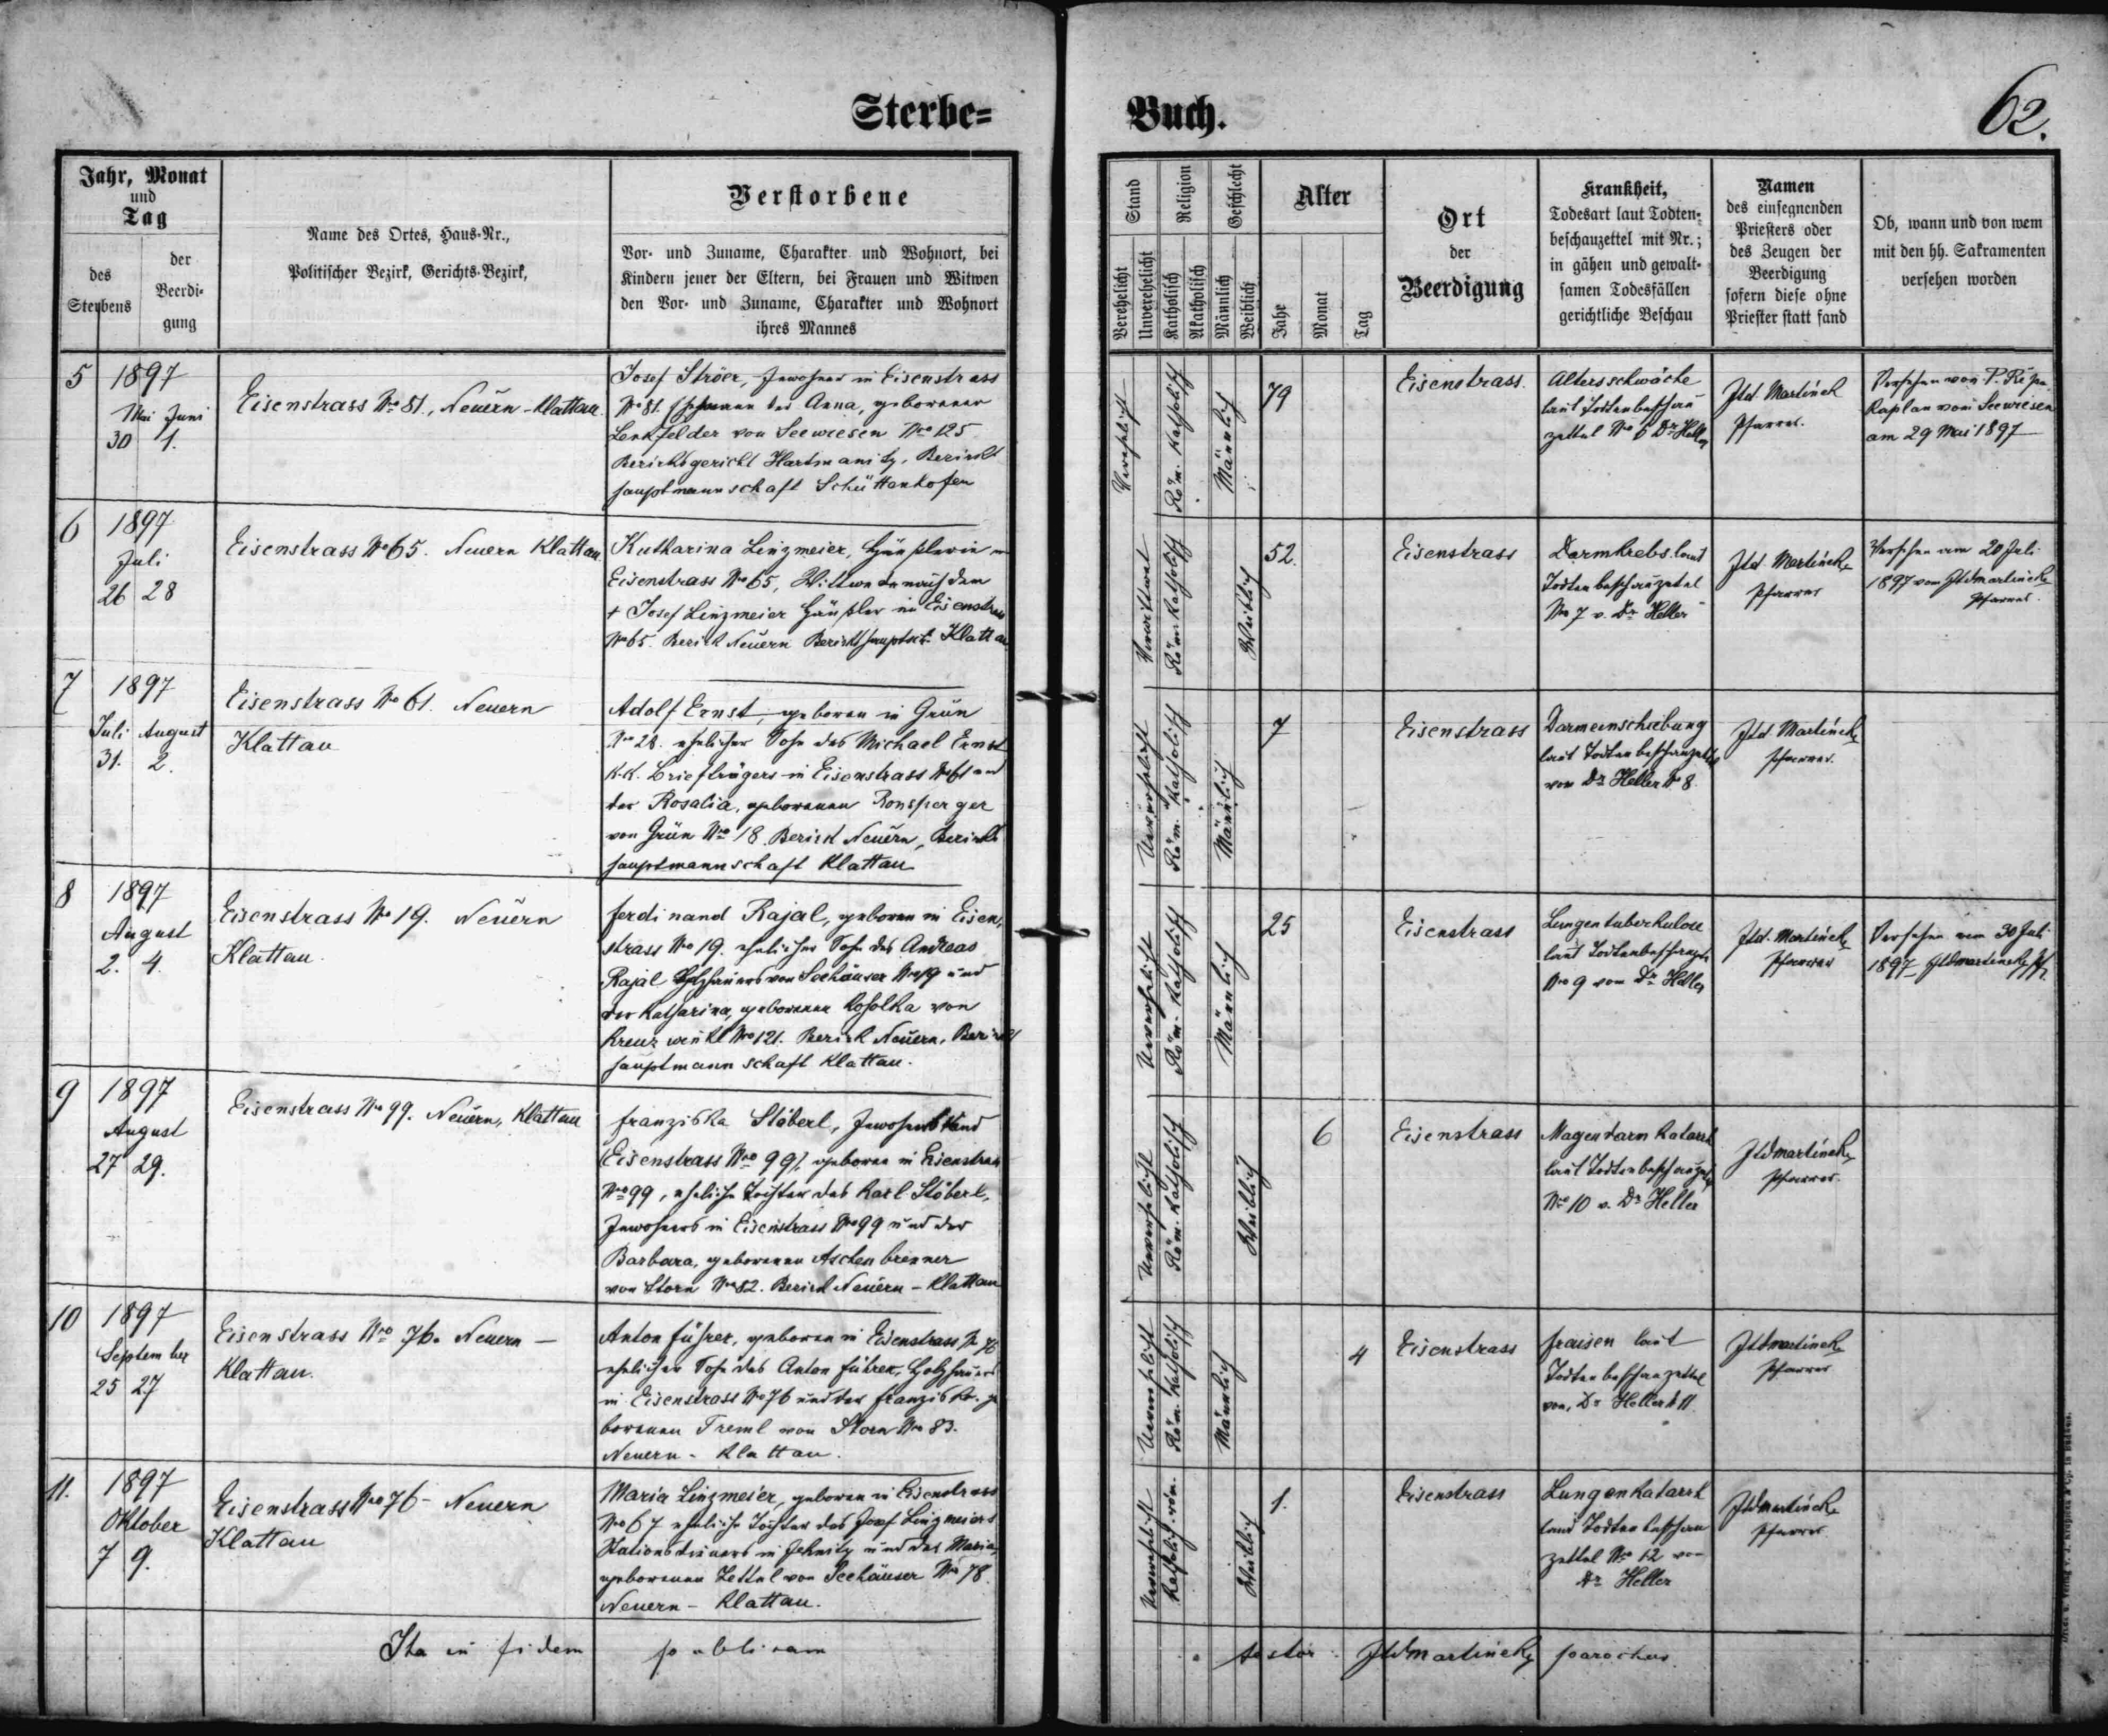 Sterbe=
Buch.
62.
Jahr, Monat
und
Tag
des
Sterbens
der
Beerdi-
gung
Name des Ortes, Haus-Nr.,
Politischer Bezirk, Gerichts-Bezirk,
Verstorbene
Vor- und Zuname, Charakter und Wohnort, bei
Kindern jener der Eltern, bei Frauen und Witwen
den Vor- und Zuname, Charakter und Wohnort
ihres Mannes
Stand
Verehelicht
Unverehelicht
Religion
Katholisch
Akatholisch
Geschlecht
Männlich
Weiblich
Alter
Jahr
Monat
Tag
Ort
der
Beerdigung
Krankheit,
Todesart laut Todten-
beschauzettel mit Nr.;
in gähen und gewalt-
samen Todesfällen
gerichtliche Beschau
Namen
des einsegnenden
Priesters oder
des Zeugen der
Beerdigung
sofern diese ohne
Priester statt fand
Ob, wann und von wem
mit den hh. Sakramenten
versehen worden
5
1897
Mai Juni
30 1.
Eisenstrass No 81., Neuern - Klattau.
Josef Ströer, Inwohner in Eisenstrass
No 81. Ehemann der Anna, geborener
Lenkfelder von Seewiesen No 125
Bezirksgericht Hartmanitz, Bezirks
hauptmannschaft Schüttenhofen
Verehelicht
Röm. Katholisch
Männlich
79
Eisenstrass.
Altersschwäche
laut Todtenbeschau
zettel No 6 Dr Heller
Martinek
Pfarrer.
Versehen von P. Řepa
Kaplan von Seewiesen
am 29 Mai 1897
6
1897
Juli
26 28
Eisenstrass No 65. Neuern Klattau
Katharina Linzmeier, Häuslerin in
Eisenstrass No 65, Wittwe nach dem
+ Josef Linzmeier Häusler in Eisenstrass
No 65. Bezirk Neuern Bezirkshauptm. Klattau
Verwittwet
Röm. Katholisch
Weiblich
52.
Eisenstrass
Darmkrebs laut
Todtenbeschauzettel
No 7 v. Dr Heller
Martinek
Pfarrer
Versehen am 20 Juli
1897 vom Martinek
Pfarrer.
7
1897
Juli August
31. 2.
Eisenstrass No 61. Neuern
Klattau
Adolf Ernst, geboren in Grün
No 28. ehelicher Sohn des Michael Ernst
K.K. Briefträgers in Eisenstrass No 61 und
der Rosalia, geborenen Ronsperger
von Grün No 18. Bezirk Neuern, Bezirks
hauptmannschaft Klattau
Unverehelicht
Röm. Katholisch
Männlich
7
Eisenstrass
Darmeinschiebung
laut Todtenbeschauzettel
von Dr Heller No 8.
Martinek
Pfarrer.
8
1897
August
2. 4.
Eisenstrass No 19. Neuern
Klattau.
Ferdinand Rajal, geboren in Eisen,
strass No 19. ehelicher Sohn des Andreas
Rajal Holzhauers von Seehäuser No 19 und
der Katharina, geborenen Koholka von
Kreuzwinkl No 121. Bezirk Neuern, Bezirks
hauptmannschaft Klattau.
Unverehelicht
Röm. Katholisch
Männlich
25
Eisenstrass
Lungentuberkulose
laut Todtenbeschauzet.
No 9 vom Dr Heller
Martinek
Pfarrer
Versehen am 30 Juli
1897 Martinek Pf.
9
1897
August
27 29.
Eisenstrass No 99. Neuern, Klattau
Franziska Stöberl, Inwohnerskind
(Eisenstrass No 99), geboren in Eisenstrass
No 99, eheliche Tochter des Karl Stöberl,
Inwohners in Eisenstrass No 99 und der
Barbara, geborenen Aschenbrenner
von Storn No 82. Bezirk Neuern - Klattau
Unverehelicht
Röm. Katholisch
Weiblich
6
Eisenstrass
Magendarmkatarrh
laut Todtenbeschauzet.
No 10 v. Dr Heller
Martinek
Pfarrer.
10
1897
September
25 27
Eisenstrass No 76. Neuern -
Klattau.
Anton Führer, geboren in Eisenstrass No 76
ehelicher Sohn des Anton Führer, Holzhauers
in Eisenstrass No 76 und der Franziska, ge
borenen Treml von Storn No 83.
Neuern - Klattau.
Unverehelicht
Röm. Katholisch
Männlich
4
Eisenstrass
Fraisen laut
Todtenbeschauzettel
von Dr Heller No 11.
Martinek
Pfarrer
11.
1897
Oktober
7 9.
Eisenstrass No 76 - Neuern
Klattau
Maria Linzmeier, geboren in Eisenstrass
No 67 eheliche Tochter des Josef Linzmeiers
Stationsdieners in und der Maria,
geborenen Zettel von Seehäuser No 78.
Neuern - Klattau.
Unverehelicht
Katholisch. röm.
Weiblich
1.
Eisenstrass
Lungenkatarrh
laut Todtenbeschau
zettel No 12 von
Dr Heller
Martinek
Pfarrer.
Ita in fidem publicam
testor: Martinek parochus